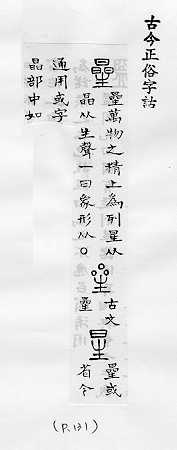 古今正俗字詁
曐
曐萬物之精上為列星从
晶从生聲一曰象形从〇
古文
曐
星
曐或
省今
通用或字
晶部中如
(P.131)